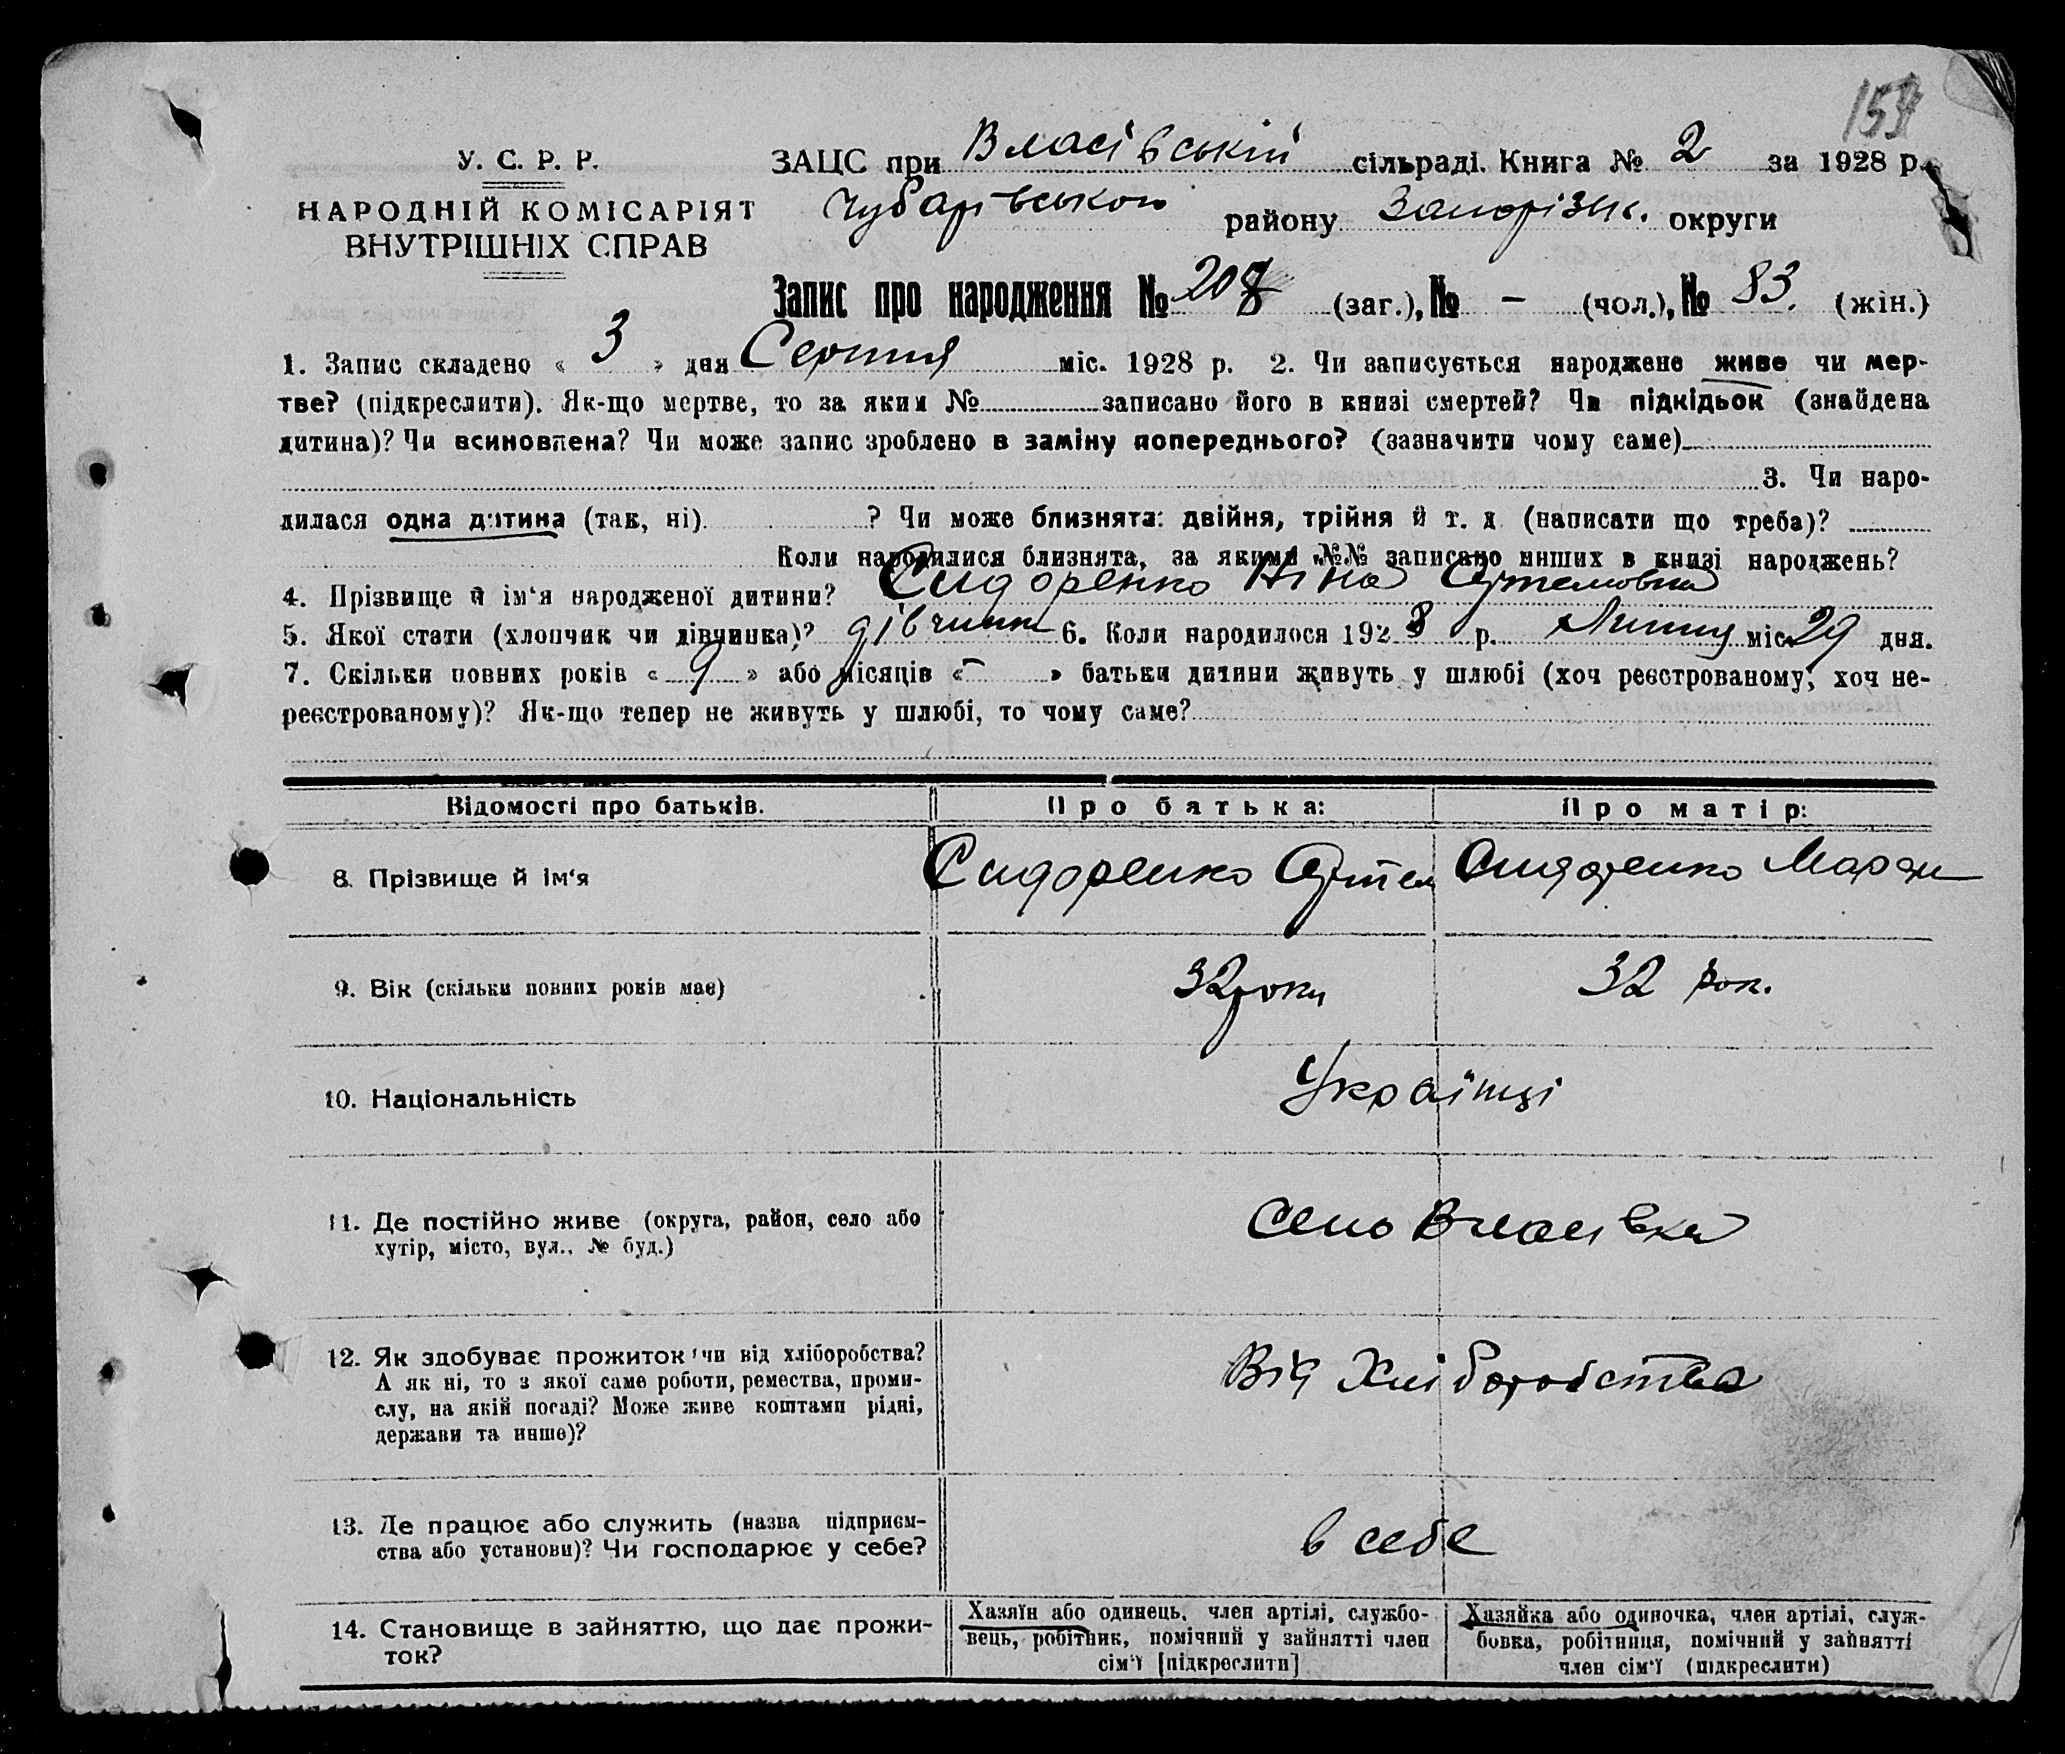 У. С. Р. Р.
НАРОДНІЙ КОМІСАРІЯТ
ВНУТРІШНІХ СПРАВ
ЗАЦС при Власівській сільраді. Книга № 2 за 1928 р.
Чубарівського району Запорізьк. округи
Запис про народження № 208 (заг.), № – (чол.), № 83. (жін.)
1. Запис складено « 3 » дня Серпня міс. 1928 р. 2. Чи записується народжене живе чи мер-
тве? (підкреслити). Як-що мертве, то за яким № записано його в книзі смертей? Чи підкідьок (знайдена
дитина)? Чи всиновлена? Чи може запис зроблено в заміну попереднього? (зазначити чому саме)
3. Чи наро-
дилася одна дитина (так, ні). ? Чи може близнята: двійня, трійня й т. д. (написати що треба)?
Коли народилися близнята, за якими №№ записано инших в книзі народжень?
4. Прізвище й ім‘я народженої дитини? Сидоренко Ніна Артемовна
5. Якої стати (хлопчик чи дівчинка)? дівчинк 6. Коли народилося 1928 р. Липня міс. 29 дня.
7. Скільки повних років « 9 » або місяців « – » батьки дитини живуть у шлюбі (хоч реєстрованому, хоч не-
реєстрованому)? Як-що тепер не живуть у шлюбі, то чому саме?
Відомості про батьків. Про батька: Про матір:
8. Прізвище й ім‘я Сидоренко Артем Сидоренко
9. Вік (скільки повних років має) 32 роки 32 рок.
10. Національність Українці
11. Де постійно живе (округа, район, село або
хутір, місто, вул., № буд.) Село Власівка
12. Як здобуває прожиток чи від хліборобства?
А як ні, то з якої саме роботи, ремества, проми-
слу, на якій посаді? Може живе коштами рідні,
держави та инше)? Від Хліборобства
13. Де працює або служить (назва підприєм-
ства або установи)? Чи господарює у себе? в себе
14. Становище в зайняттю, що дає прожи-
ток?
Хазяїн або одинець, член артілі, службо-
вець, робітник, помічний у зайнятті член
сім‘ї [підкреслити]
Хазяйка або одиночка, член артілі, служ-
бовка, робітниця, помічний у зайнятті
член сім‘ї (підкреслити)